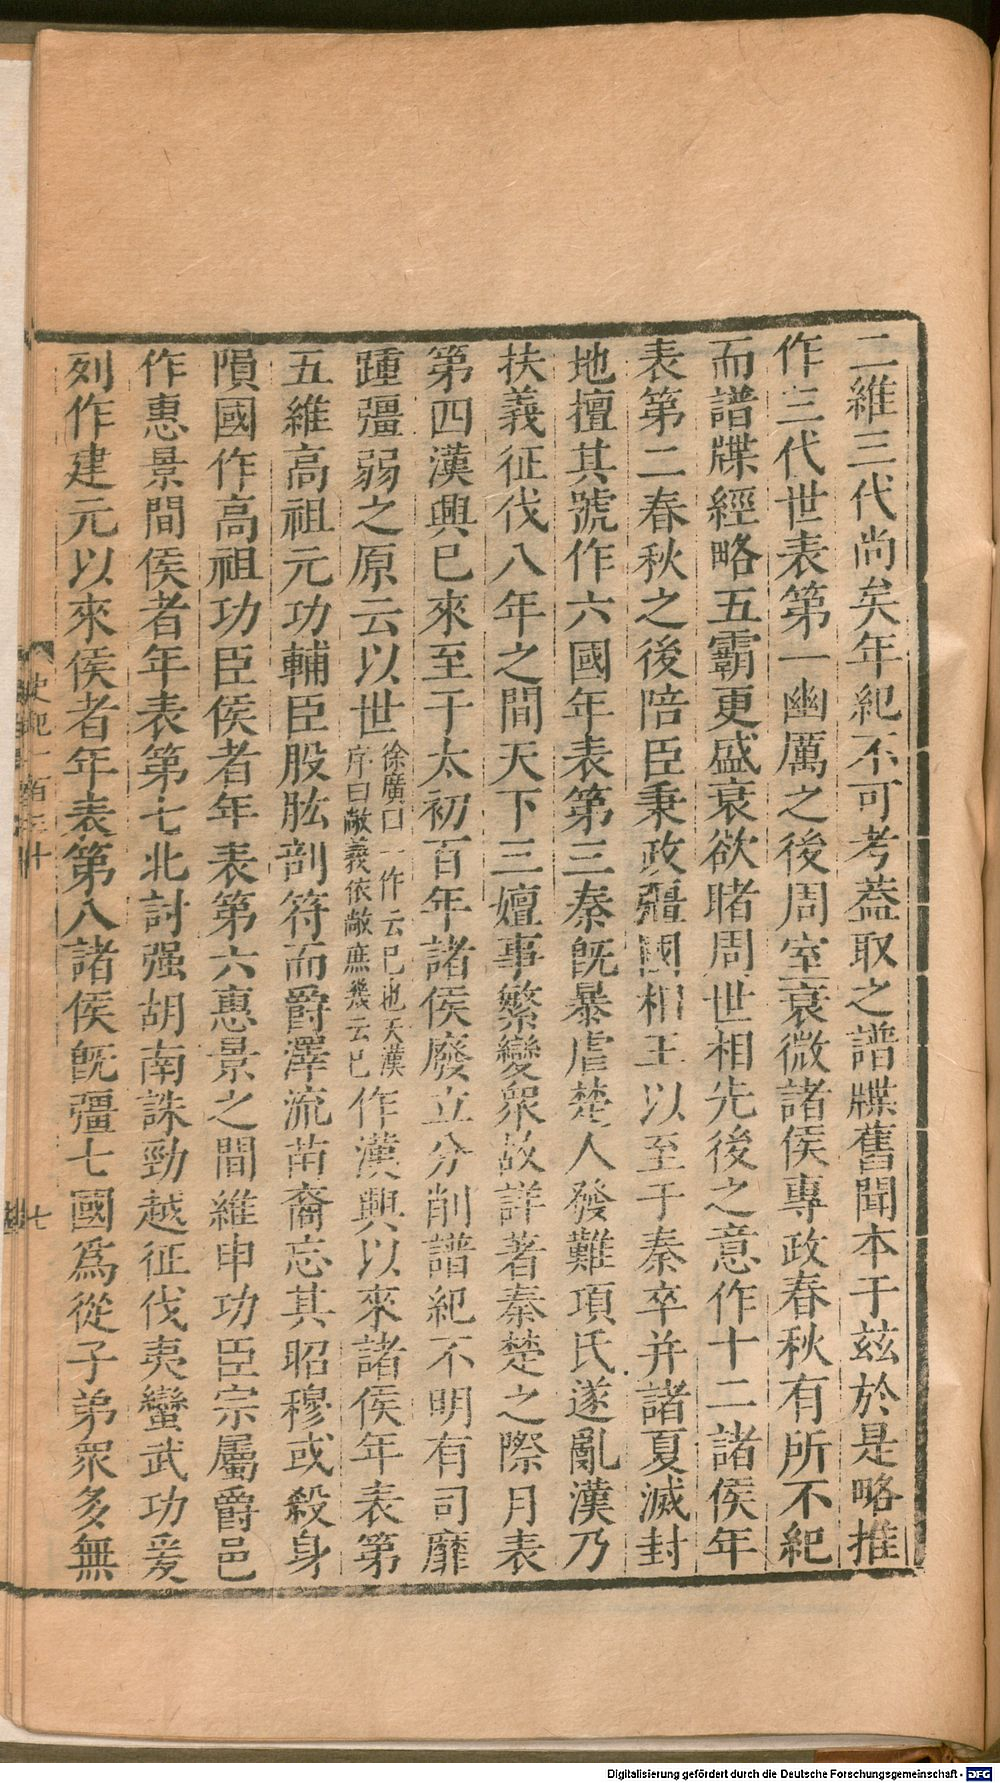 二維三代尚矣年紀不可考蓋取之譜牒舊聞本于兹於是略推
作三代世表第一幽厲之後周室衰微諸侯專政春秋有所不紀
而譜牒經略五霸更盛衰欲睹周世相先後之意作十二諸侯年
表第二春秋之後陪臣秉政彊國相王以至于秦卒并諸夏滅封
地擅其號作六國年表第三秦旣暴虐楚人發難項氏遂亂漢乃
扶義征伐八年之間天下三嬗事繁變衆故詳著秦楚之際月表
第四漢興已來至于太初百年諸侯廢立分削譜紀不明有司靡
踵彊弱之原云以世徐廣曰一作云已也天漢序曰敞義依敞庶幾云已作漢興以來諸侯年表第
五維高祖元功輔臣股肱剖符而爵澤流苗裔忘其昭穆或殺身
隕國作高祖功臣侯者年表第六惠景之間維申功臣宗屬爵邑
作惠景間侯者年表第七北討强胡南誅勁越征伐夷蠻武功爰
列作建元以來侯者年表第八諸侯旣彊七國爲從子弟衆多無
史記一百三十
七
Digitalisierung gefördert durch die Deutsche Forschungsgemeinschaft - DFG